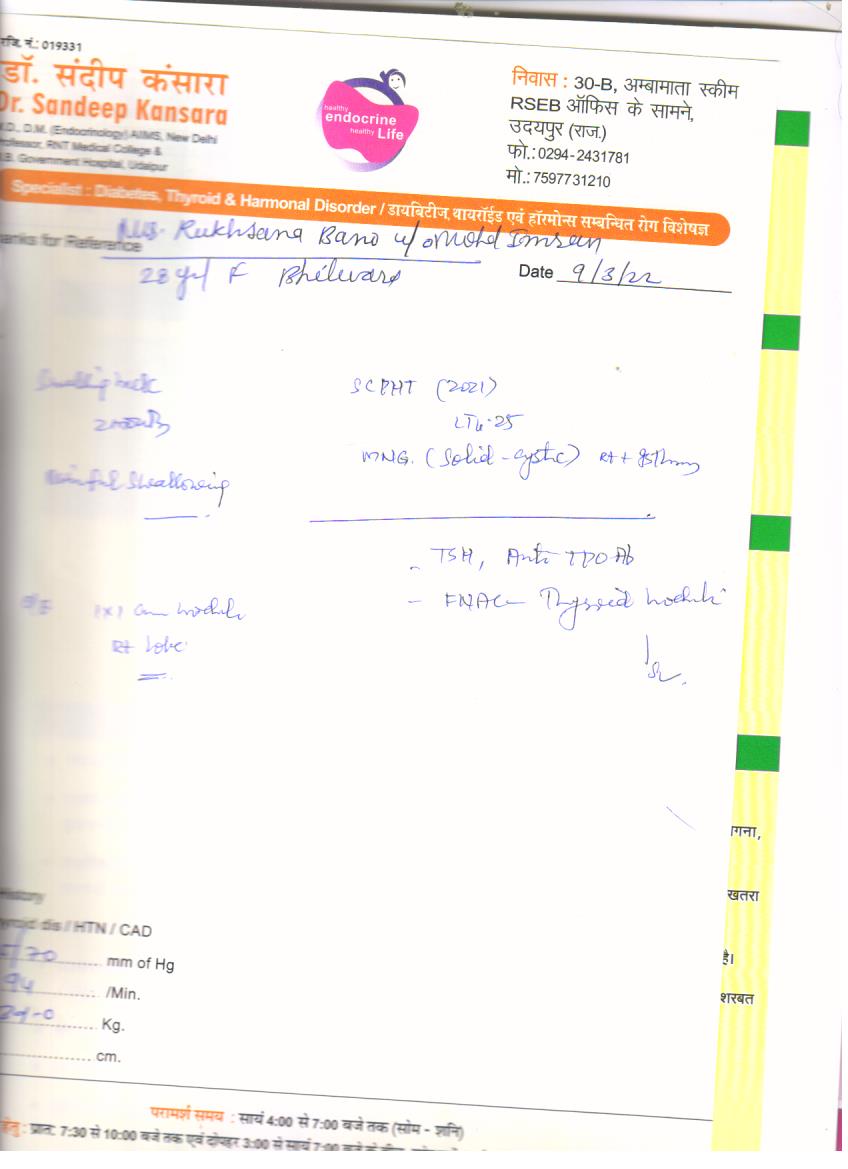 रजि. नं.: 019331
डॉ. संदीप कंसारा
Dr. Sandeep Kansara
M.D., D.M. (Endocrinology) AIIMS, New Delhi
Professor, RNT Medical College &
M.B. Government Hospital, Udaipur
healthy
endocrine
healthy Life
निवास : 30-B, अम्बामाता स्कीम
RSEB ऑफिस के सामने,
उदयपुर (राज.)
फो.: 0294-2431781
मो.: 7597731210
Specialist : Diabetes, Thyroid & Harmonal Disorder / डायबिटीज थायरॉईड एवं हॉरमोन्स सम्बन्धित रोग विशेषज्ञ
Rukhsana Bano w/o Mohd Imran
anks for Reference
28 yr/ F Bhilwara
Date 9/3/22
Swelling neck
Painful Swallowing
SCPHT (2021)
LT4-25
MNG. (Solid-cystic) Rt + Isthmus
- TSH, Anti TPO Ab
- FNAC Thyroid nodule
O/E 1x1 cm nodule
Rt lobe
गना,
खतरा
है।
शरबत
History
yroid dis / HTN / CAD
/70 mm of Hg
94 /Min.
Kg.
cm.
परामर्श समय : सायं 4:00 से 7:00 बजे तक (सोम - शनि)
हेतु : प्रात: 7:30 से 10:00 बजे तक एवं दोपहर 3:00 से सायं 7:00 बजे